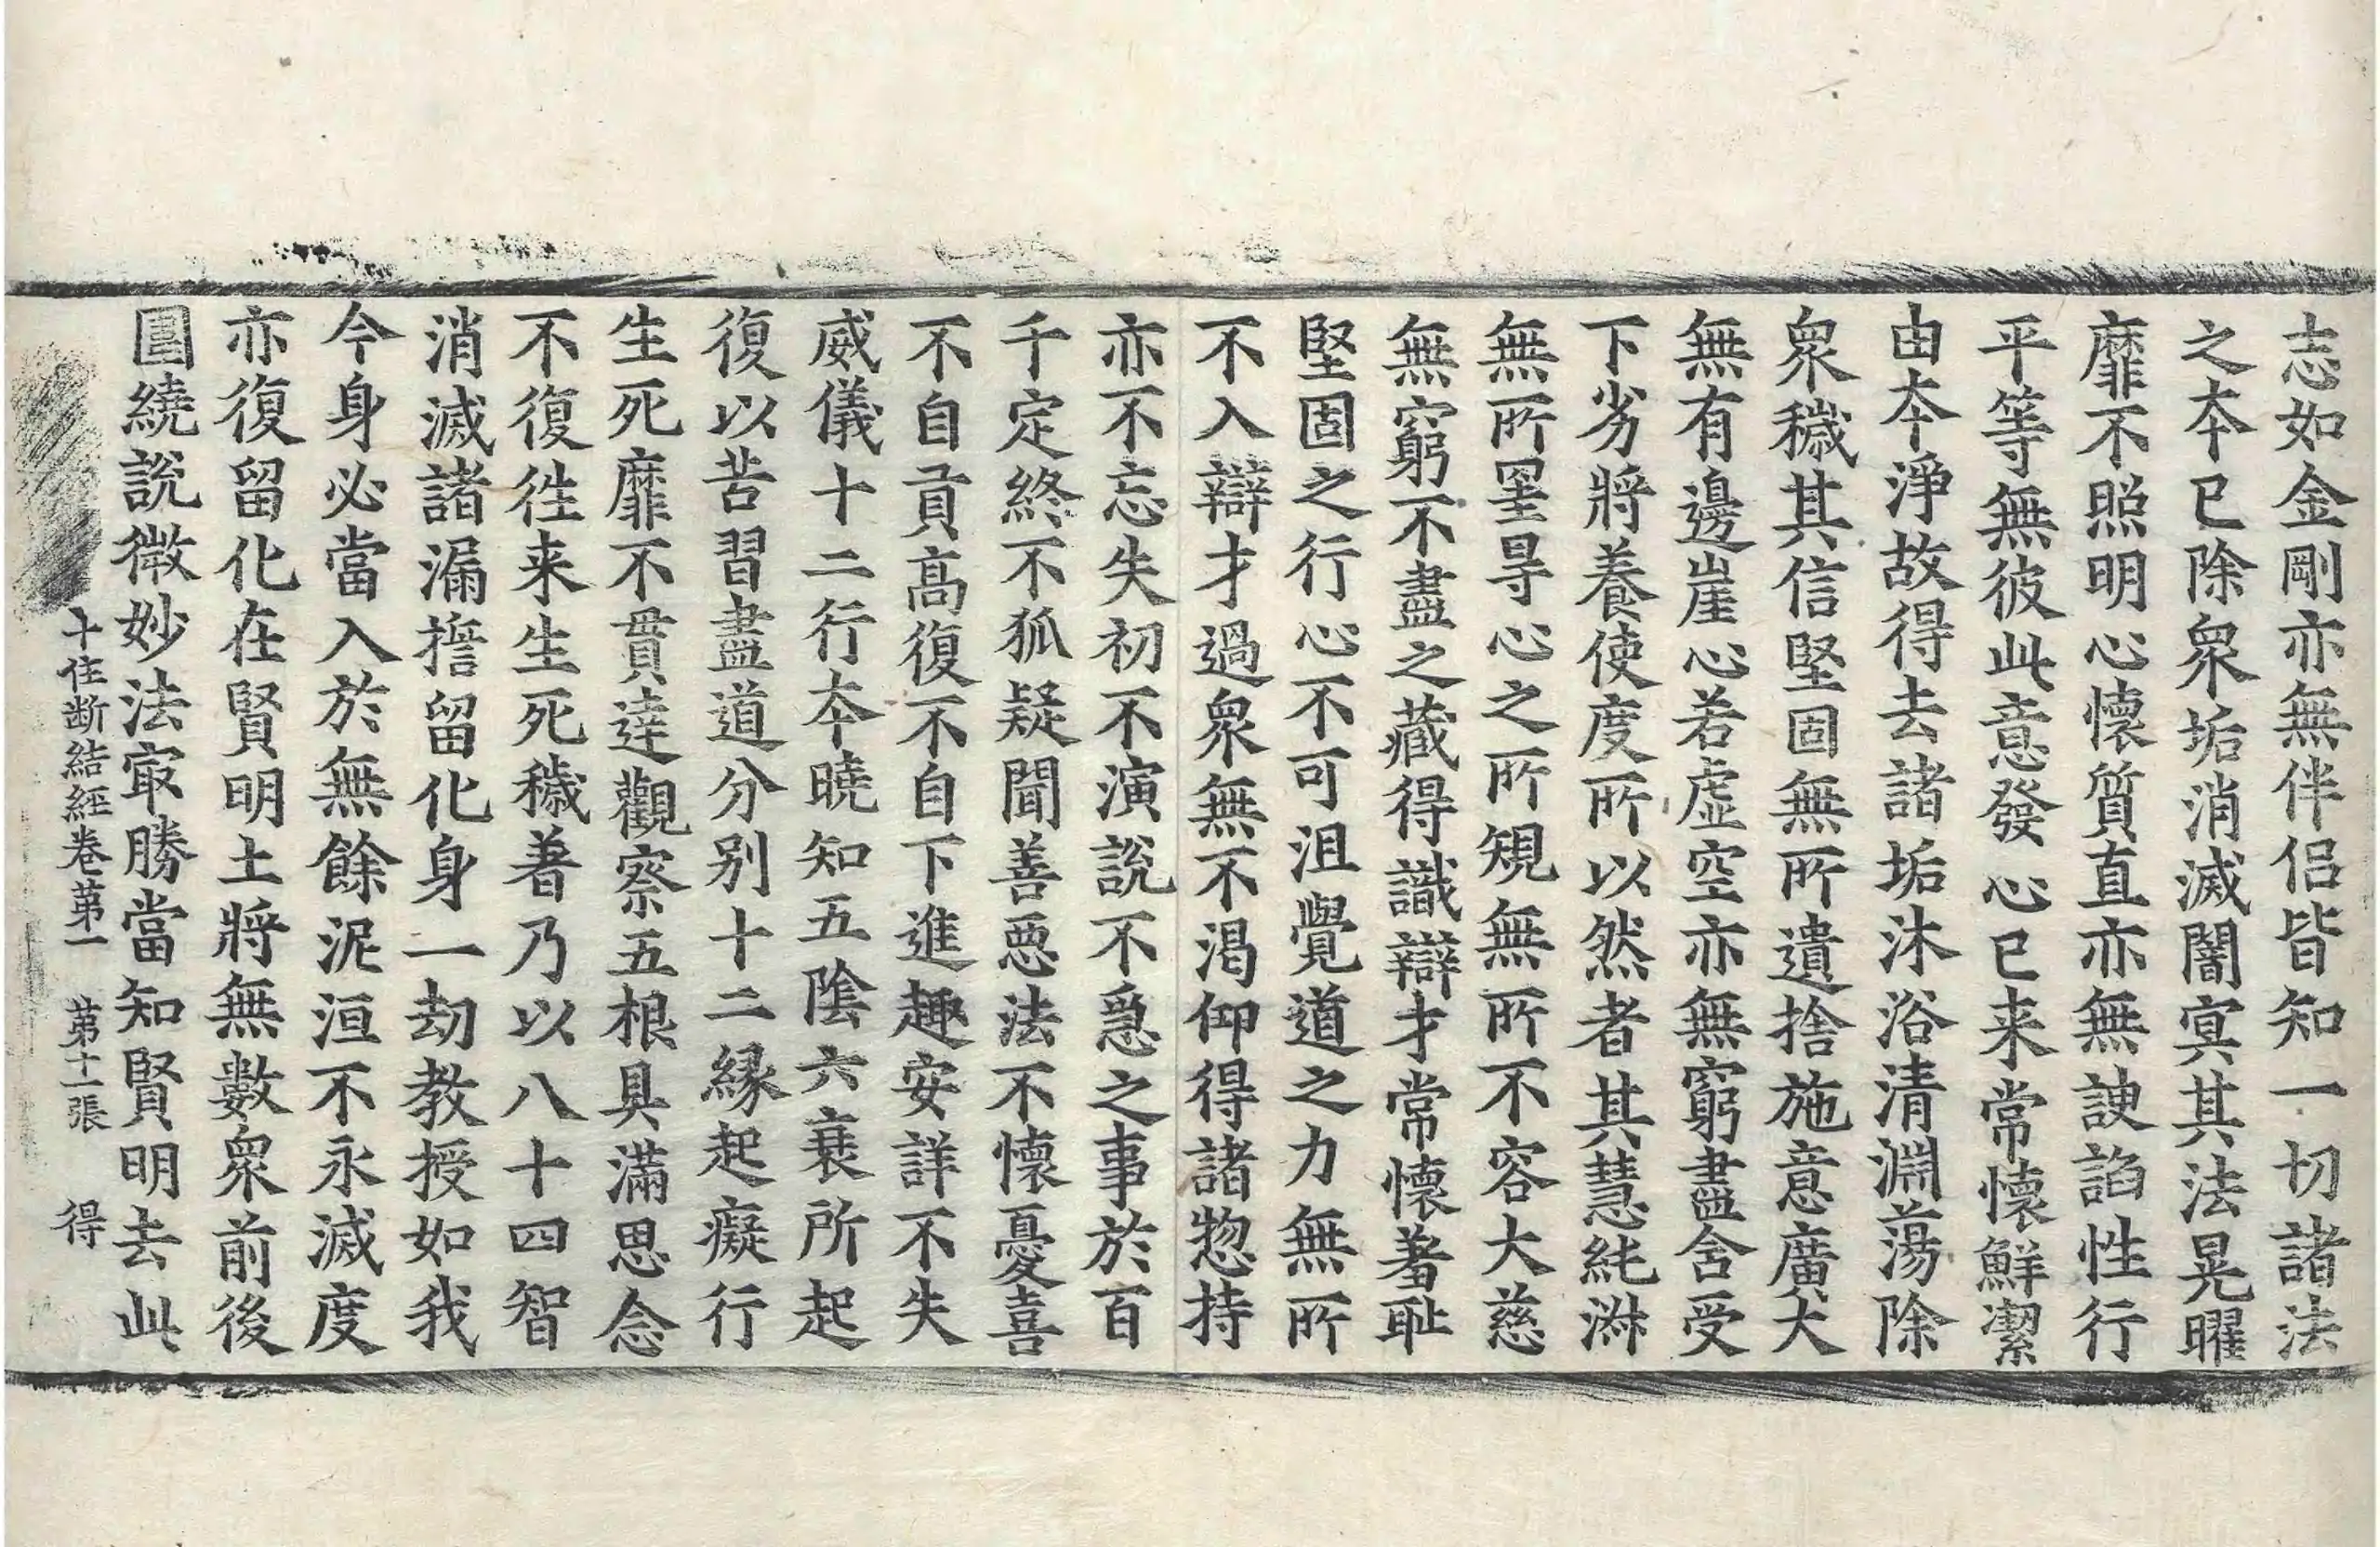 志如金剛亦無伴侶皆知一切諸法
之本已除衆垢消滅闇冥其法晃曜
靡不照明心懷質直亦無諛諂性行
平等無彼此意發心已来常懷鮮潔
由本淨故得去諸垢沐浴清淵蕩除
衆穢其信堅固無所遺捨施意廣大
無有邊崖心若虛空亦無窮盡舍受
下劣將養使度所以然者其慧純淋
無所罣㝵心之所䂓無所不容大慈
無窮不盡之藏得識辯才常懷羞耻
堅固之行心不可沮覺道之力無所
不入辯才過衆無不渴仰得諸惣持
亦不忘失初不演說不急之事於百
千定終不狐疑聞善惡法不懷憂喜
不自貢高復不自下進趣安詳不失
威儀十二行本曉知五陰六衰所起
復以苦習盡道分別十二緣起癡行
生死靡不貫達觀察五根具滿思念
不復徃来生死穢著乃以八十四智
消滅諸漏擔留化身一劫教授如我
今身必當入於無餘泥洹不永滅度
亦復留化在賢明土將無數衆前後
圍繞說微妙法㝡勝當知賢明去此
十住断結經卷苐一 苐十一張 得